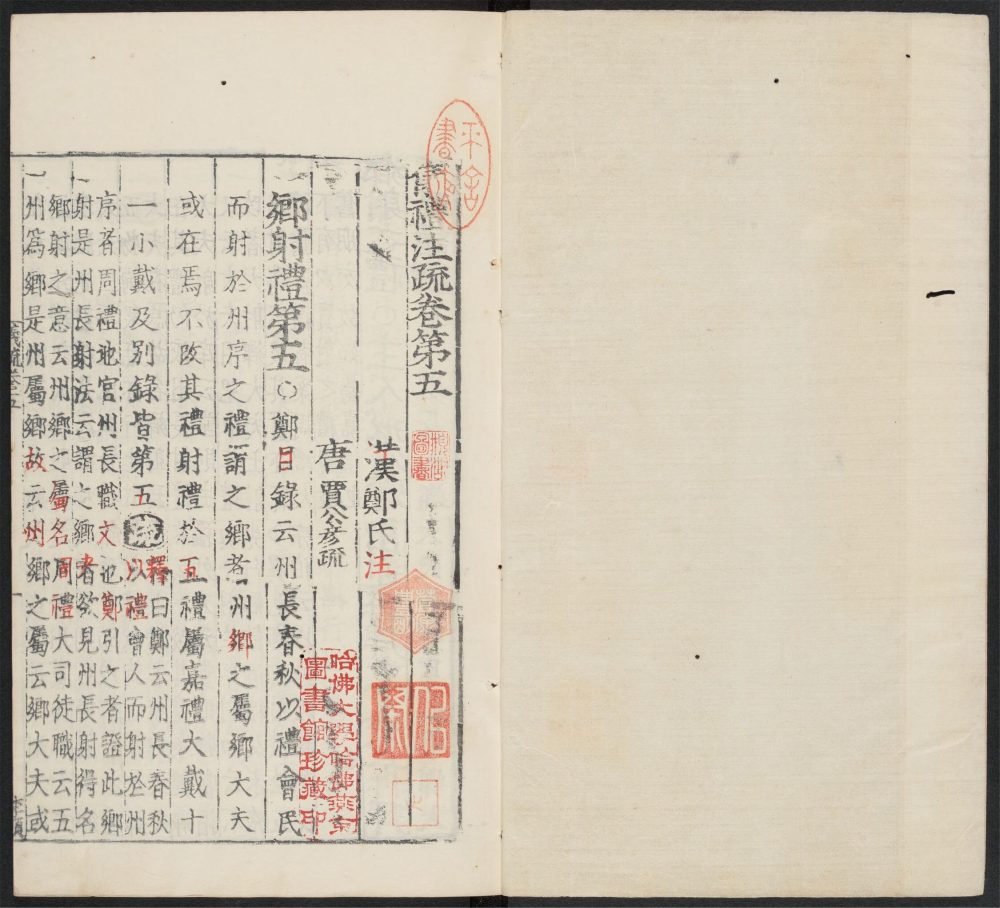 儀禮注疏卷第五
漢鄭氏注
唐賈公彥疏
鄉射禮第五○鄭目錄云州長春秋以禮會民
而射於州序之禮謂之鄉者州鄉之屬鄉大夫
或在焉不改其禮射禮於五禮屬嘉禮大戴十
一小戴及別錄皆第五疏釋曰鄭云州長春秋
以禮會人而射於州
序者周禮地官州長職文也鄭引之者證此鄉
射是州長射法云謂之鄉者欲見州長射得名
鄉射之意云州鄉之屬名周禮大司徒職云五
州為鄉是州屬鄉故云州鄉之屬云鄉大夫或
哈佛大學哈佛燕京
圖書館珍藏印